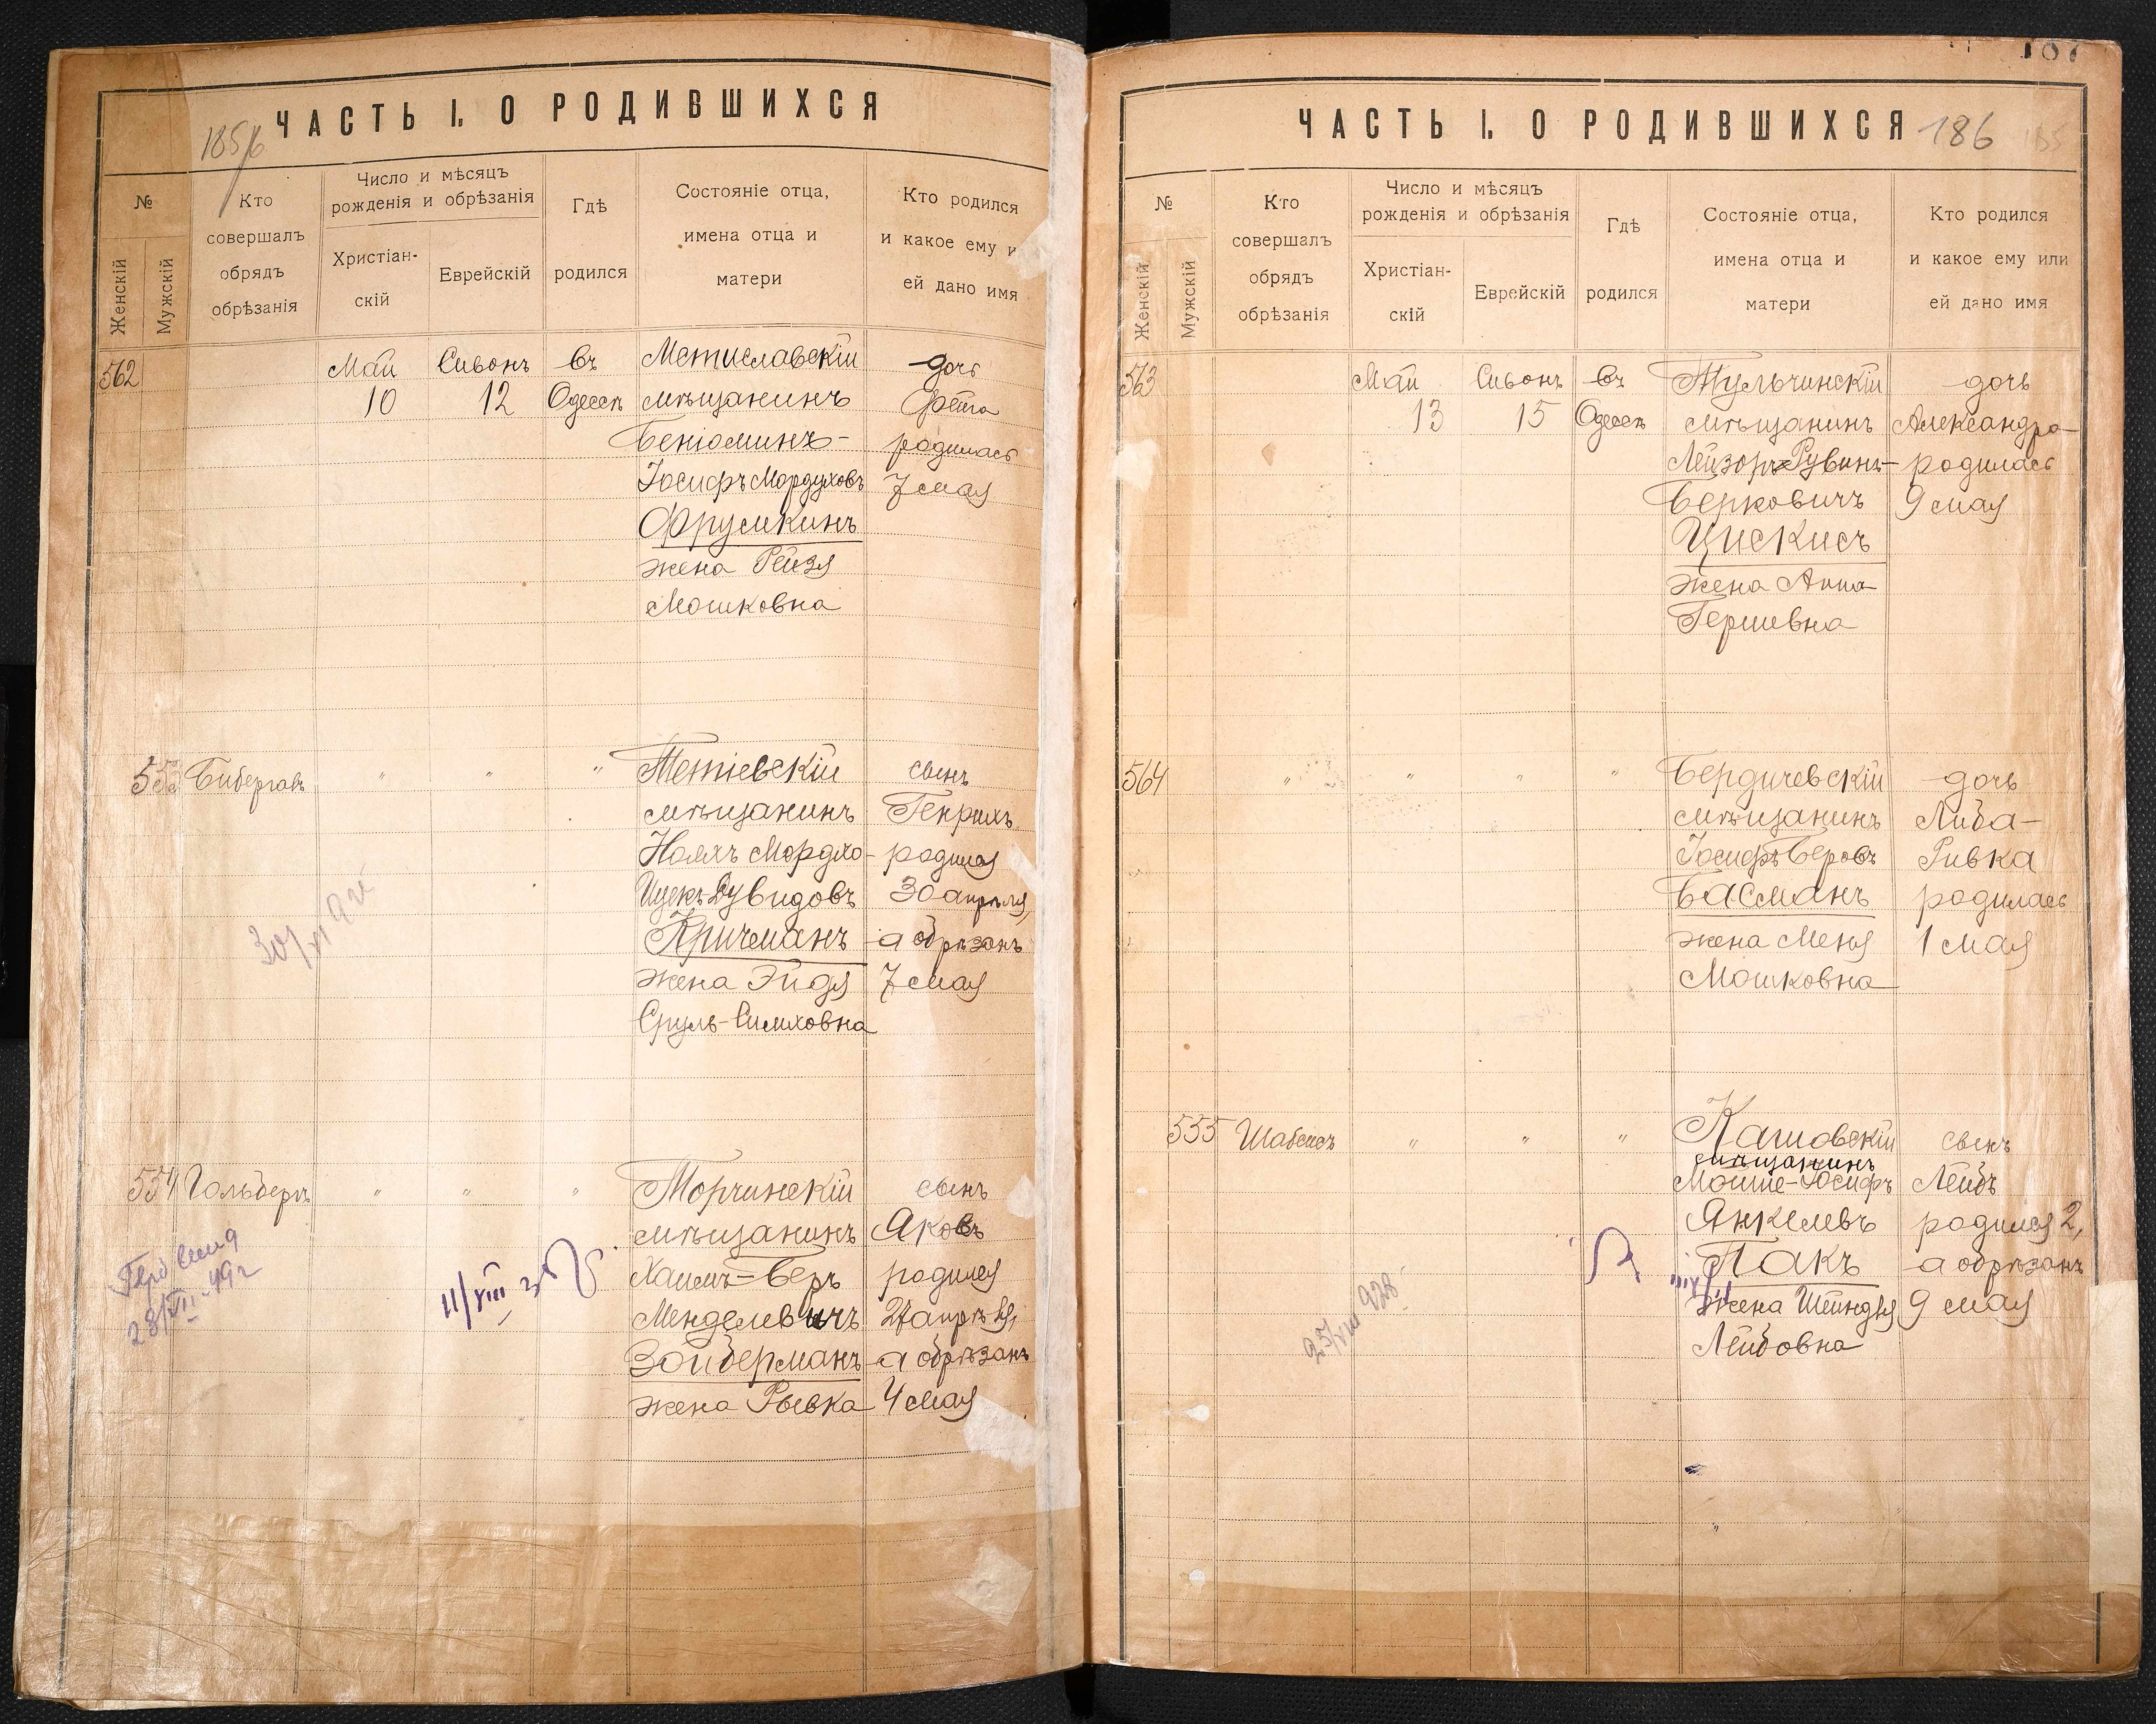 ЧАСТЬ I. О РОДИВШИХСЯ
185/6
№
Женскій
Мужскій
Кто
совершалъ
обрядъ
обрѣзанія
Число и мѣсяцъ
рожденія и обрѣзанія
Христіан-
скій
Еврейскій
Гдѣ
родился
Состояніе отца,
имена отца и
матери
Кто родился
и какое ему и
ей дано имя
562
Май
10
Сивонъ
12
въ
Одессѣ
Мстиславскій
мѣщанинъ
Беніоминъ-
Іосифъ Мордуховъ
Фрумкинъ
жена Рейзя
Мошковна
дочь
родилась
7 мая
553
" " "
Тетіевскій
мѣщанинъ
Нояхъ Мордхо-
Ицекъ Дувидовъ
Кричманъ
жена Эйдя
Сруль-Симховна
сынъ
Генрихъ
родился
30 апрѣля,
а обрѣзанъ
7 мая
554
Гольберъ
" " "
Торчинскій
мѣщанинъ
Хаимъ-Беръ
Менделевичъ
Зойберманъ
жена Рывка
сынъ
Яковъ
родился
27 апрѣля,
а обрѣзанъ
4 мая
28/VII-49г
11/VIII
ЧАСТЬ I. О РОДИВШИХСЯ
186
№
Женскій
Мужскій
Кто
совершалъ
обрядъ
обрѣзанія
Число и мѣсяцъ
рожденія и обрѣзанія
Христіан-
скій
Еврейскій
Гдѣ
родился
Состояніе отца,
имена отца и
матери
Кто родился
и какое ему или
ей дано имя
563
Май
13
Сивонъ
15
въ
Одессѣ
Тульчинскій
мѣщанинъ
Лейзоръ-Рувинъ
Берковичъ
Цискисъ
жена Анна
Гершевна
дочь
Александра
родилась
9 мая
564
" " " "
Бердичевскій
мѣщанинъ
Іосифъ Беровъ
Басманъ
жена Меня
Мошковна
дочь
Либа-
Ривка
родилась
1 мая
555
Шабсисъ
" " "
Кашовскій
мѣщанинъ
Мойше-Іосифъ
Янкелевъ
Пакъ
жена Шейндля
Лейбовна
сынъ
Лейбъ
родился 2,
а обрѣзанъ
9 мая